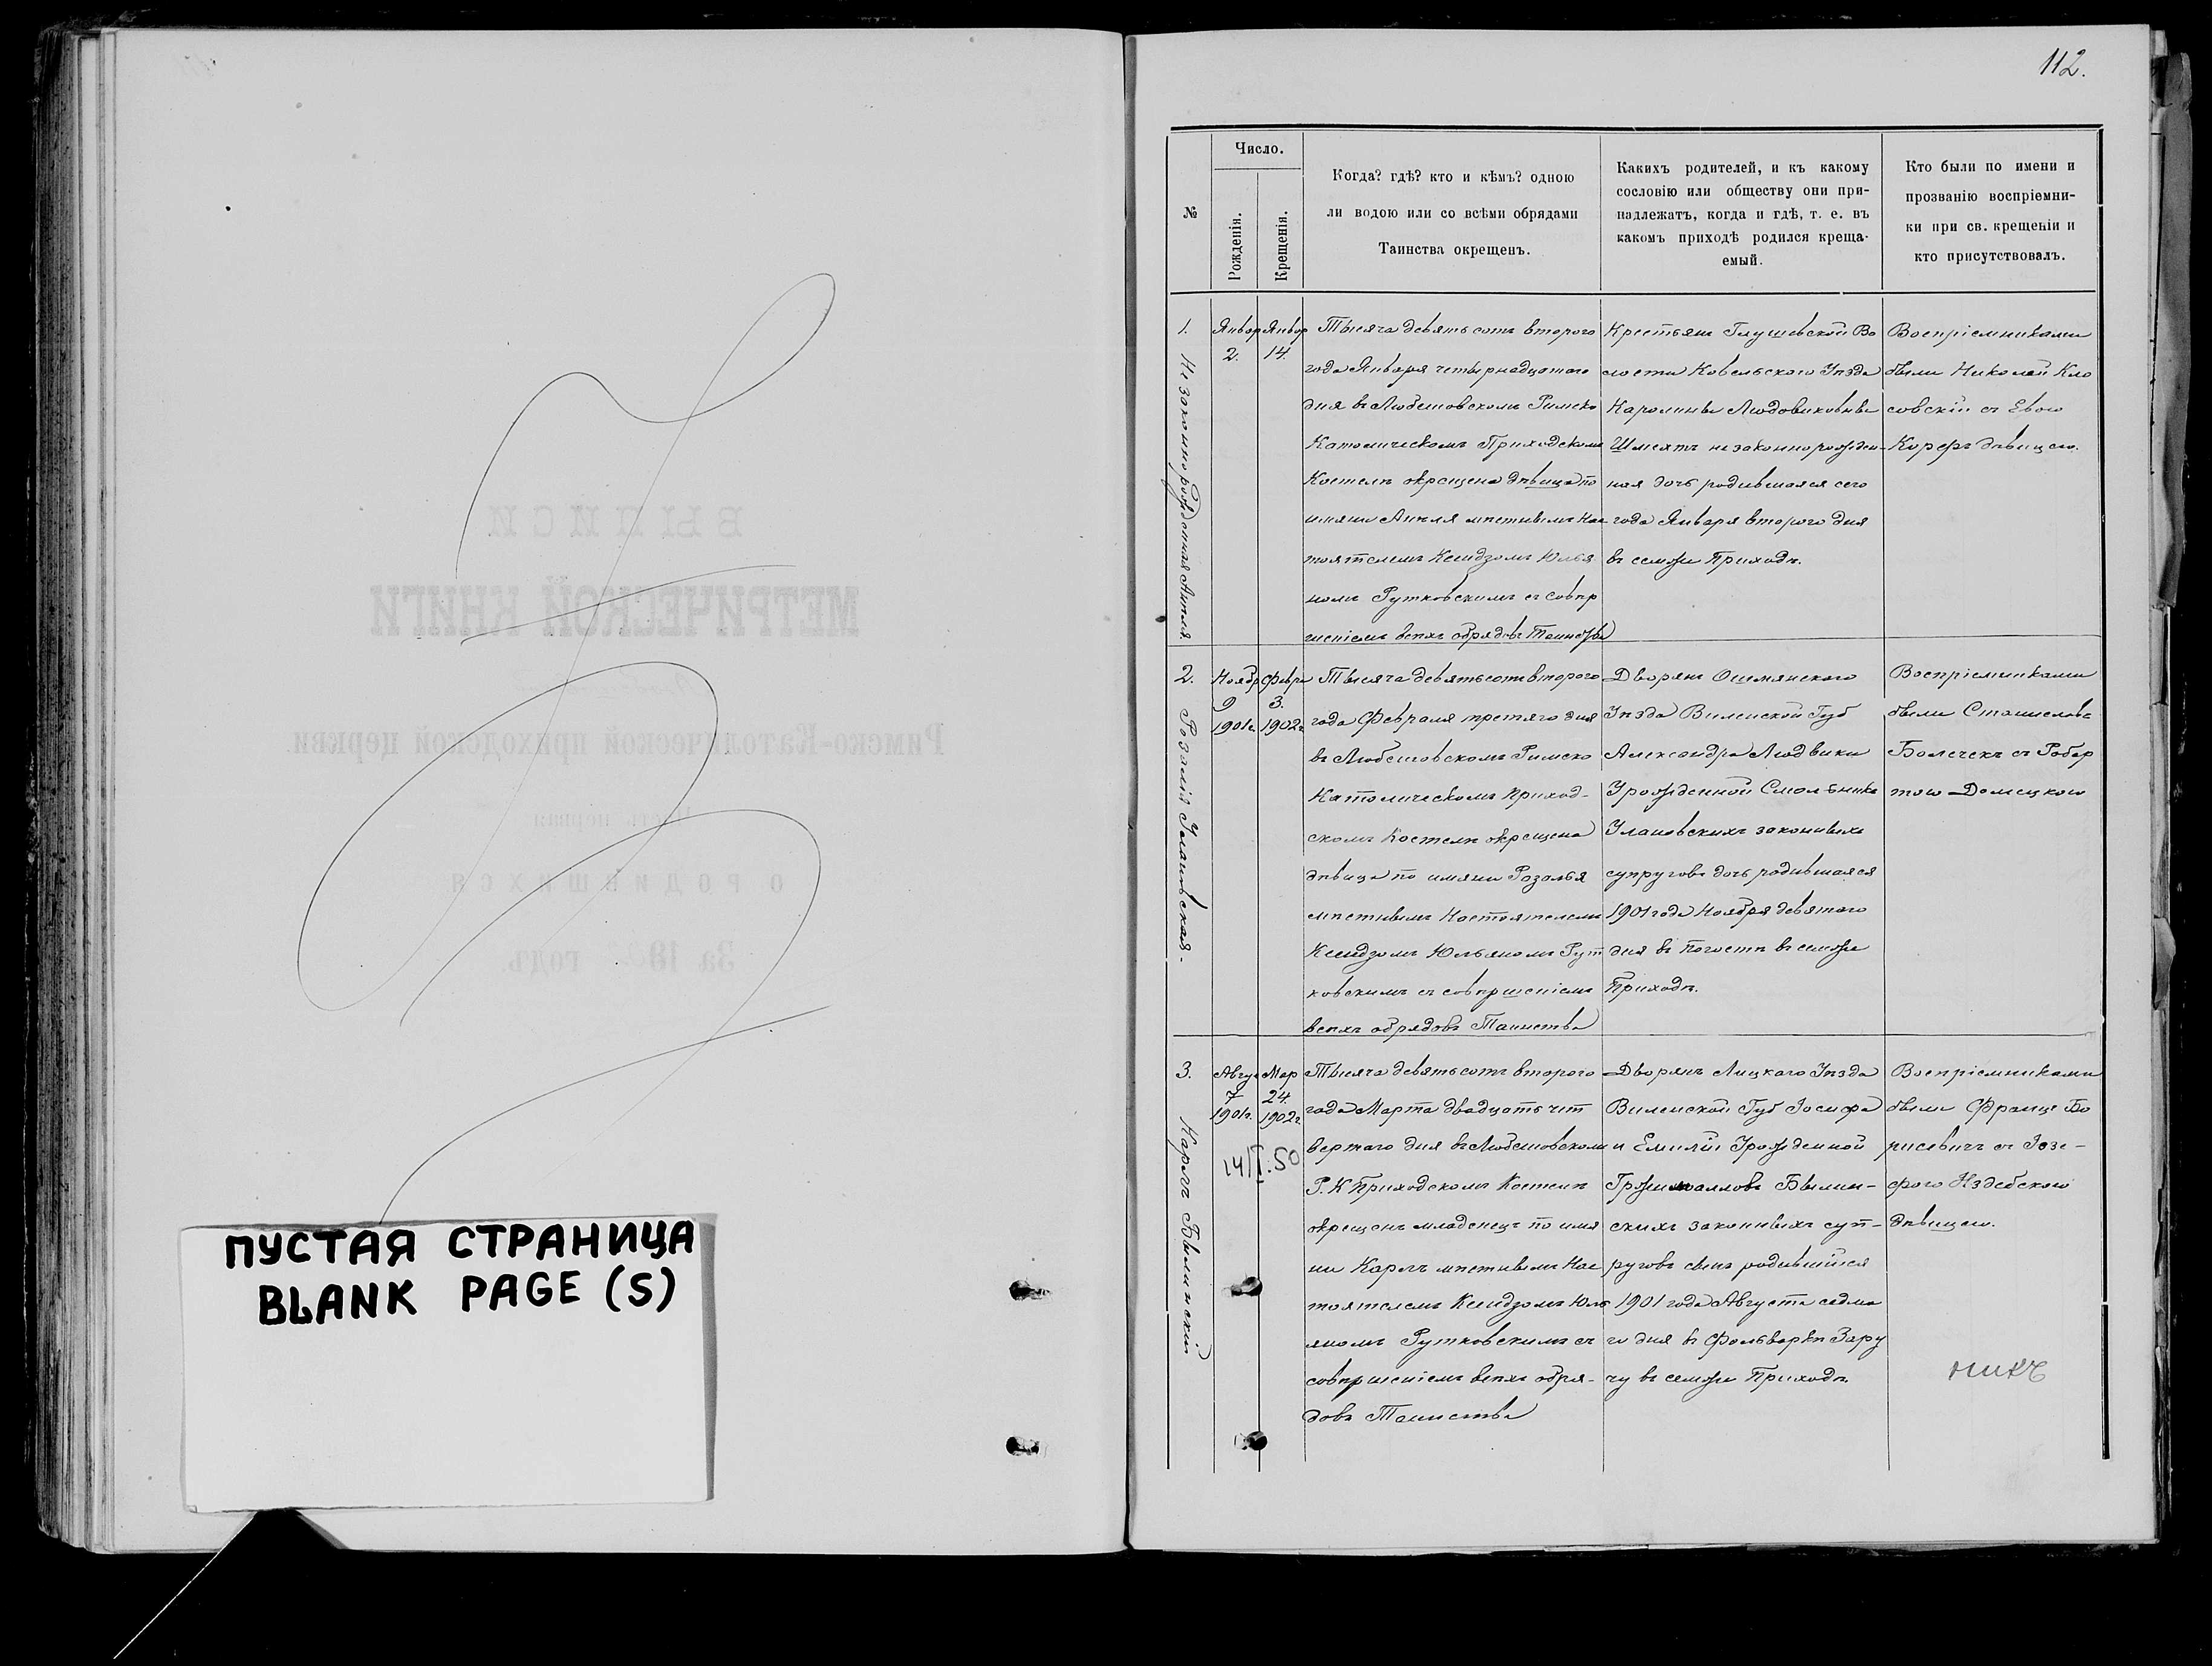 ПУСТАЯ СТРАНИЦА
BLANK PAGE (S)
112.
№
Число.
Рожденія.
Крещенія.
Когда? гдѣ? кто и кѣмъ? одною
ли водою или со всѣми обрядами
Таинства окрещенъ.
Какихъ родителей, и къ какому
сословію или обществу они при-
надлежатъ, когда и гдѣ, т. е. въ
какомъ приходѣ родился креща-
емый.
Кто были по имени и
прозванію воспріемни-
ки при св. крещеніи и
кто присутствовалъ.
1.
Незаконнорожденная Анѣля
Январ
2.
Январ
14.
Тысяча девятьсотъ второго
года Января четырнадцатого
дня въ Любешовскомъ Римско
Католическомъ Приходскомъ
Костелѣ окрещена дѣвица по
имяни Анѣля мѣстнымъ Нас
тоятелемъ Ксендзомъ Юлья
номъ Рутковскимъ съ совѣр
шеніемъ всѣхъ обрядовъ Таинства
Крестьянъ Глушской Во
лости Ковельского Уѣзда
Каролины Людовиковны
Шмехтъ незаконнорожден-
ная дочь родившаяся сего
года Января второго дня
въ семже Приходѣ.
Воспріемниками
были Николай Кло
совскій съ Евою
дѣвицею.
2.
Розалія Улановская.
Ноябр
9
1901г.
Февра
3.
1902г.
Тысяча девятьсотъ второго
года Февраля третяго дня
въ Любешовскомъ Римско
Католическомъ Приход-
скомъ Костелѣ окрещена
дѣвица по имяни Розалья
мѣстнымъ Настоятелемъ
Ксендзомъ Юльяномъ Рут
ковскимъ съ совѣршеніемъ
всѣхъ обрядовъ Таинства
Дворянъ Ошмянского
Уѣзда Виленской Губ
Александра Людвики
Урожденной
Улановскихъ законныхъ
супруговъ дочь родившаяся
1901 года Ноября девятого
дня въ Погостѣ въ семже
Приходѣ.
Воспріемниками
были Станиславъ
Болечекъ съ Робер
тою Домецкою
3.
Карлъ Былинскій
Авгус
7
1901г.
Мар
24.
1902г.
14/I.50
Тысяча девятьсотъ второго
года Марта двадцать чет
вертаго дня въ Любешовскомъ
Р. К Приходскомъ Костелѣ
окрещенъ младенецъ по имя
ни Карлъ мѣстнымъ Нас
тоятелемъ Ксендзомъ Юль
яномъ Рутковскимъ съ
совѣршеніемъ всѣхъ обря-
довъ Таинства
Дворянъ Лидкаго Уѣзда
Виленской Губ Іосифа
и Емиліи Урожденной
Былин-
скихъ законныхъ суп-
руговъ сынъ родившійся
1901 года Августа седмо
го дня въ Фольваркѣ Зару
чу въ семже Приходѣ
Воспріемниками
были Францъ Бо
рисевичъ съ Іозе-
фою Издебскою
дѣвицею.